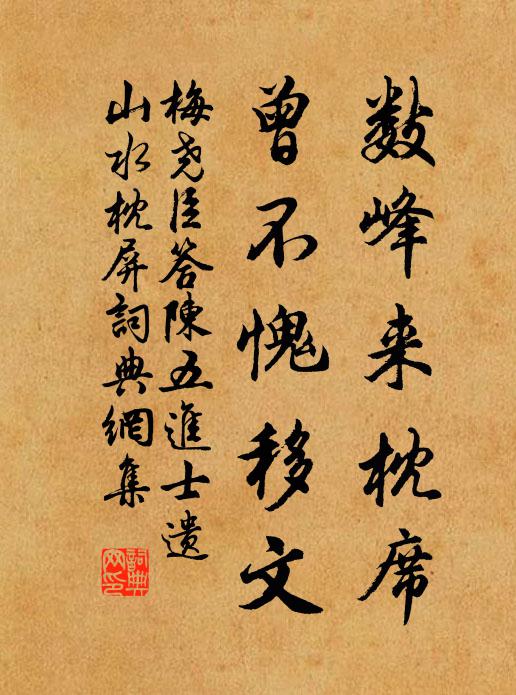 数峰来枕席
曾不愧移文
梅尧臣答陳五進士遺
山水枕屏詞典網集
詞典網印